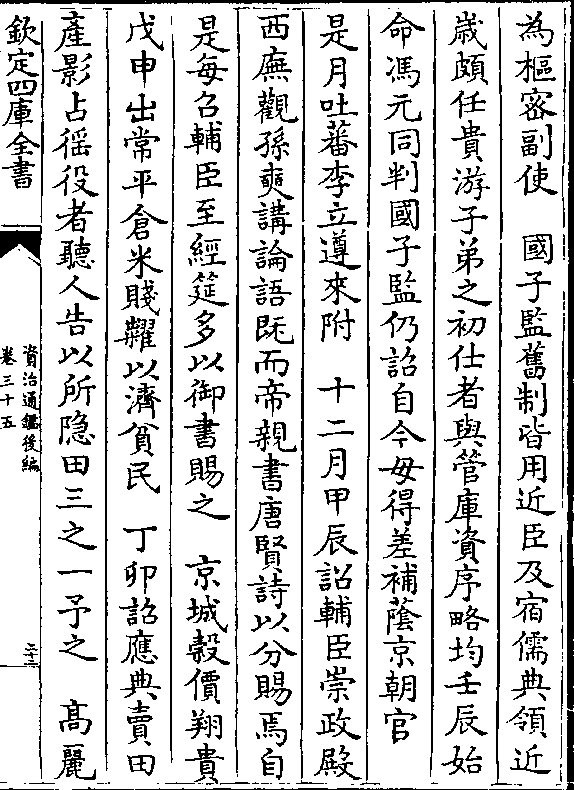 為樞密副使　國子監舊制皆用近臣及宿儒典領近
歲頗任貴游子弟之初仕者與管庫資序略均壬辰始
命馮元同判國子監仍詔自今毋得差補蔭京朝官
是月吐蕃李立遵來附　十二月甲辰詔輔臣崇政殿
西廡觀孫奭講論語既而帝親書唐賢詩以分賜焉自
是每召輔臣至經筵多以御書賜之　京城穀價翔貴
戊申出常平倉米賤糶以濟貧民　丁卯詔應典賣田
產影占徭役者聽人告以所隐田三之一予之　高麗
欽定四庫全書
資治通鑑後編
卷三十五
三十二